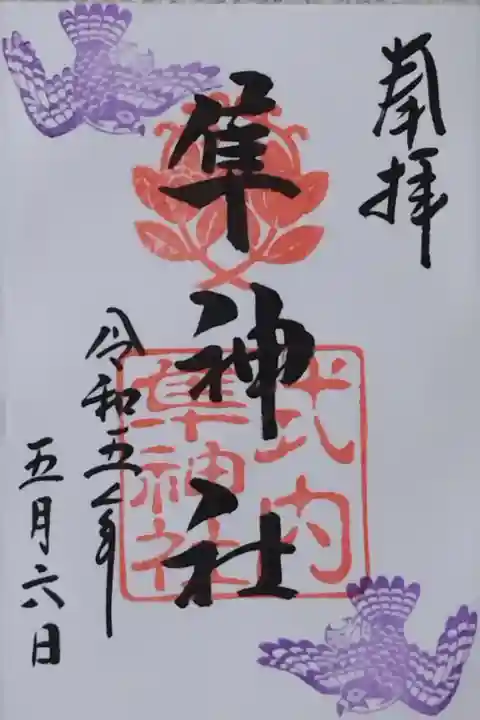 奉拝
隼神社
式内
隼神社
令和五年
五月六日